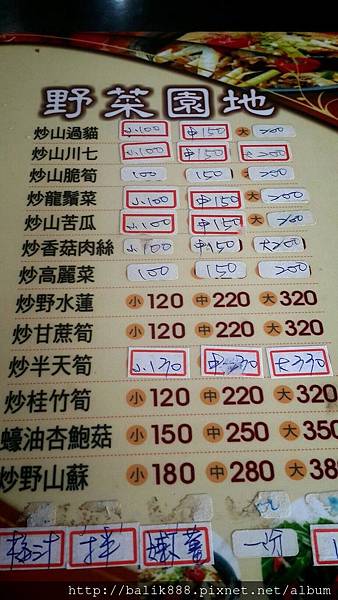 野菜園地
炒山過貓 小100 中150 大200
炒山川七 小100 中150 大200
炒山脆筍 100 150 200
炒龍鬚菜 小100 中150 大200
炒山苦瓜 小100 中150 大200
炒香菇肉絲 小100 中150 大200
炒高麗菜 100 150 200
炒野水蓮 小120 中220 大320
炒甘蔗筍 小120 中220 大320
炒半天筍 小130 中230 大330
炒桂竹筍 小120 中220 大320
蠔油杏鮑菇 小150 中250 大350
炒野山蘇 小180 中280 大38
梅汁 拌 嫩薑 一份
http://balik888.pixnet.net/album